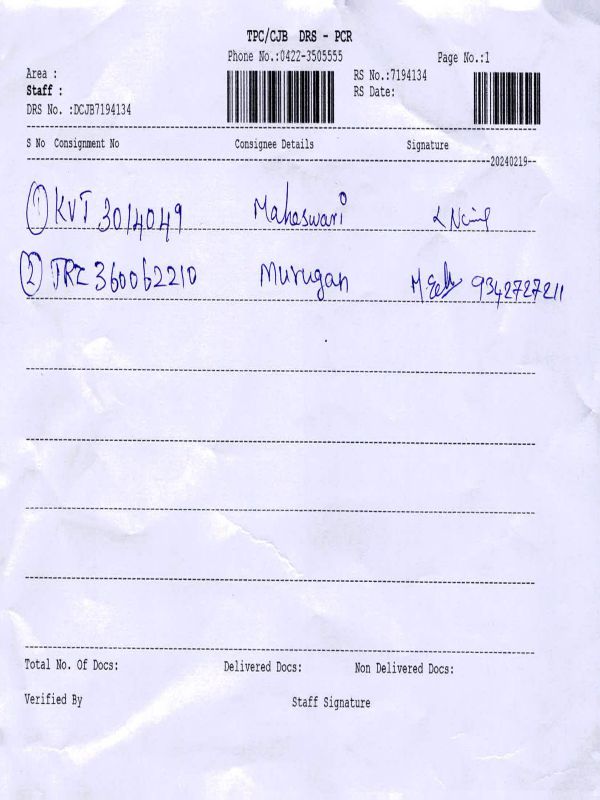 TPC/CJB DRS - PCR
Phone No.:0422-3505555 Page No.:1
Area : RS No.:7194134
Staff : RS Date:
DRS No. :DCJB7194134
S No Consignment No Consignee Details Signature
20240219
1 KVT 3014049 Maheswari
2 TRZ 360062210 Murugan 9342727211
Total No. Of Docs: Delivered Docs: Non Delivered Docs:
Verified By Staff Signature